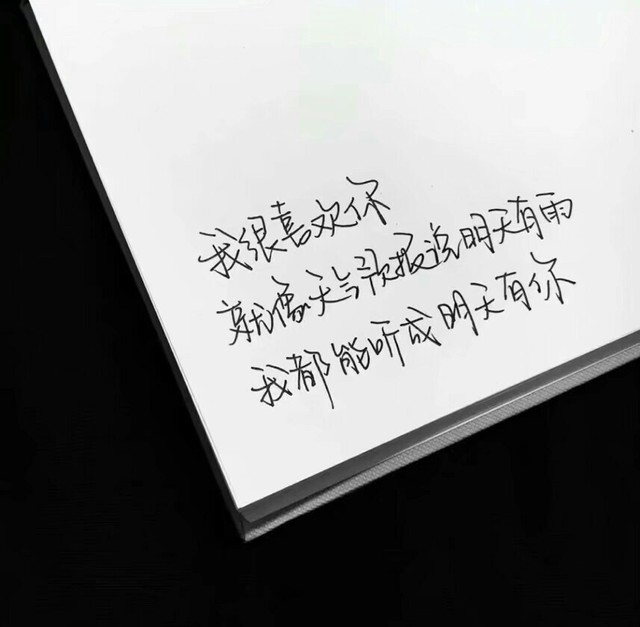 我很喜欢你
就像天气预报说明天有雨
我都能听成明天有你